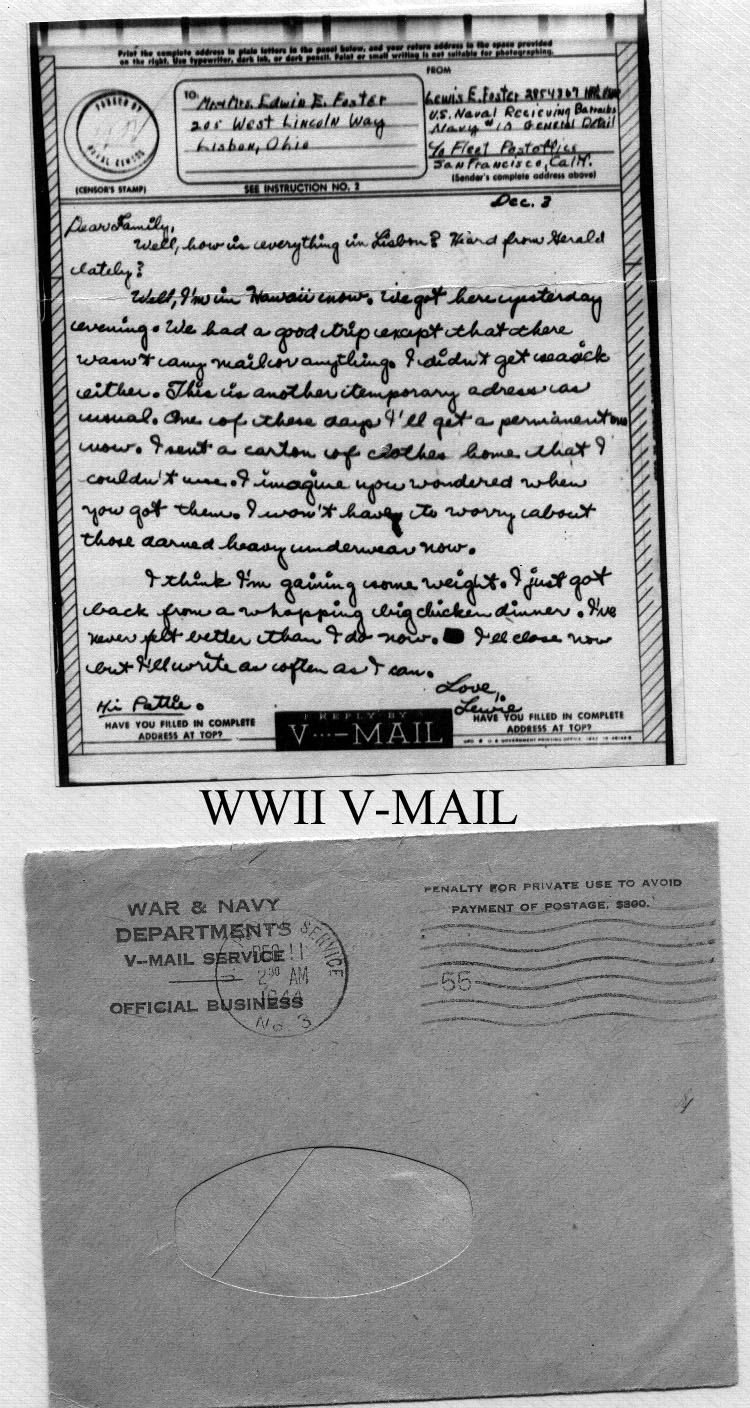 Print the complete address in plain letters in the panel below, and your return address in the space provided
on the right. Use typewriter, dark ink, or dark pencil. Faint or small writing is not suitable for photographing.
FROM
TO: Mr + Mrs. Edwin E. Foster
205 West Lincoln Way
Lisbon, Ohio
Lewis E. Foster
U.S. Naval Recieving Barracks
Navy #10 General Detail
c/o Fleet Postoffice
San Francisco, Calif.
PASSED BY
NAVAL CENSOR
(CENSOR'S STAMP)
SEE INSTRUCTION NO. 2
(Sender's complete address above)
Dec. 3
Dear Family,
Well, how is everything in Lisbon? Heard from Gerald
lately?
Well, I'm in Hawaii now. We got here yesterday
evening. We had a good trip except that there
wasn't any mail or anything. I didn't get seasick
either. This is another temporary adress as
usual. One of these days I'll get a permanent one
now. I sent a carton of clothes home that I
couldn't use. I imagine you wondered when
you got them. I won't have to worry about
those darned heavy underwear now.
I think I'm gaining some weight. I just got
back from a whopping big chicken dinner. I've
never felt better than I do now. I'll close now
but I'll write as often as I can.
Love,
Lewie
Hi Pattie.
HAVE YOU FILLED IN COMPLETE
ADDRESS AT TOP?
REPLY BY
V···—MAIL
HAVE YOU FILLED IN COMPLETE
ADDRESS AT TOP?
U.S. GOVERNMENT PRINTING OFFICE
WWII V-MAIL
WAR & NAVY
DEPARTMENTS
V-MAIL SERVICE
OFFICIAL BUSINESS
SERVICE
DEC 11
2 30 AM
1944
No 3
PENALTY FOR PRIVATE USE TO AVOID
PAYMENT OF POSTAGE, $300.
55